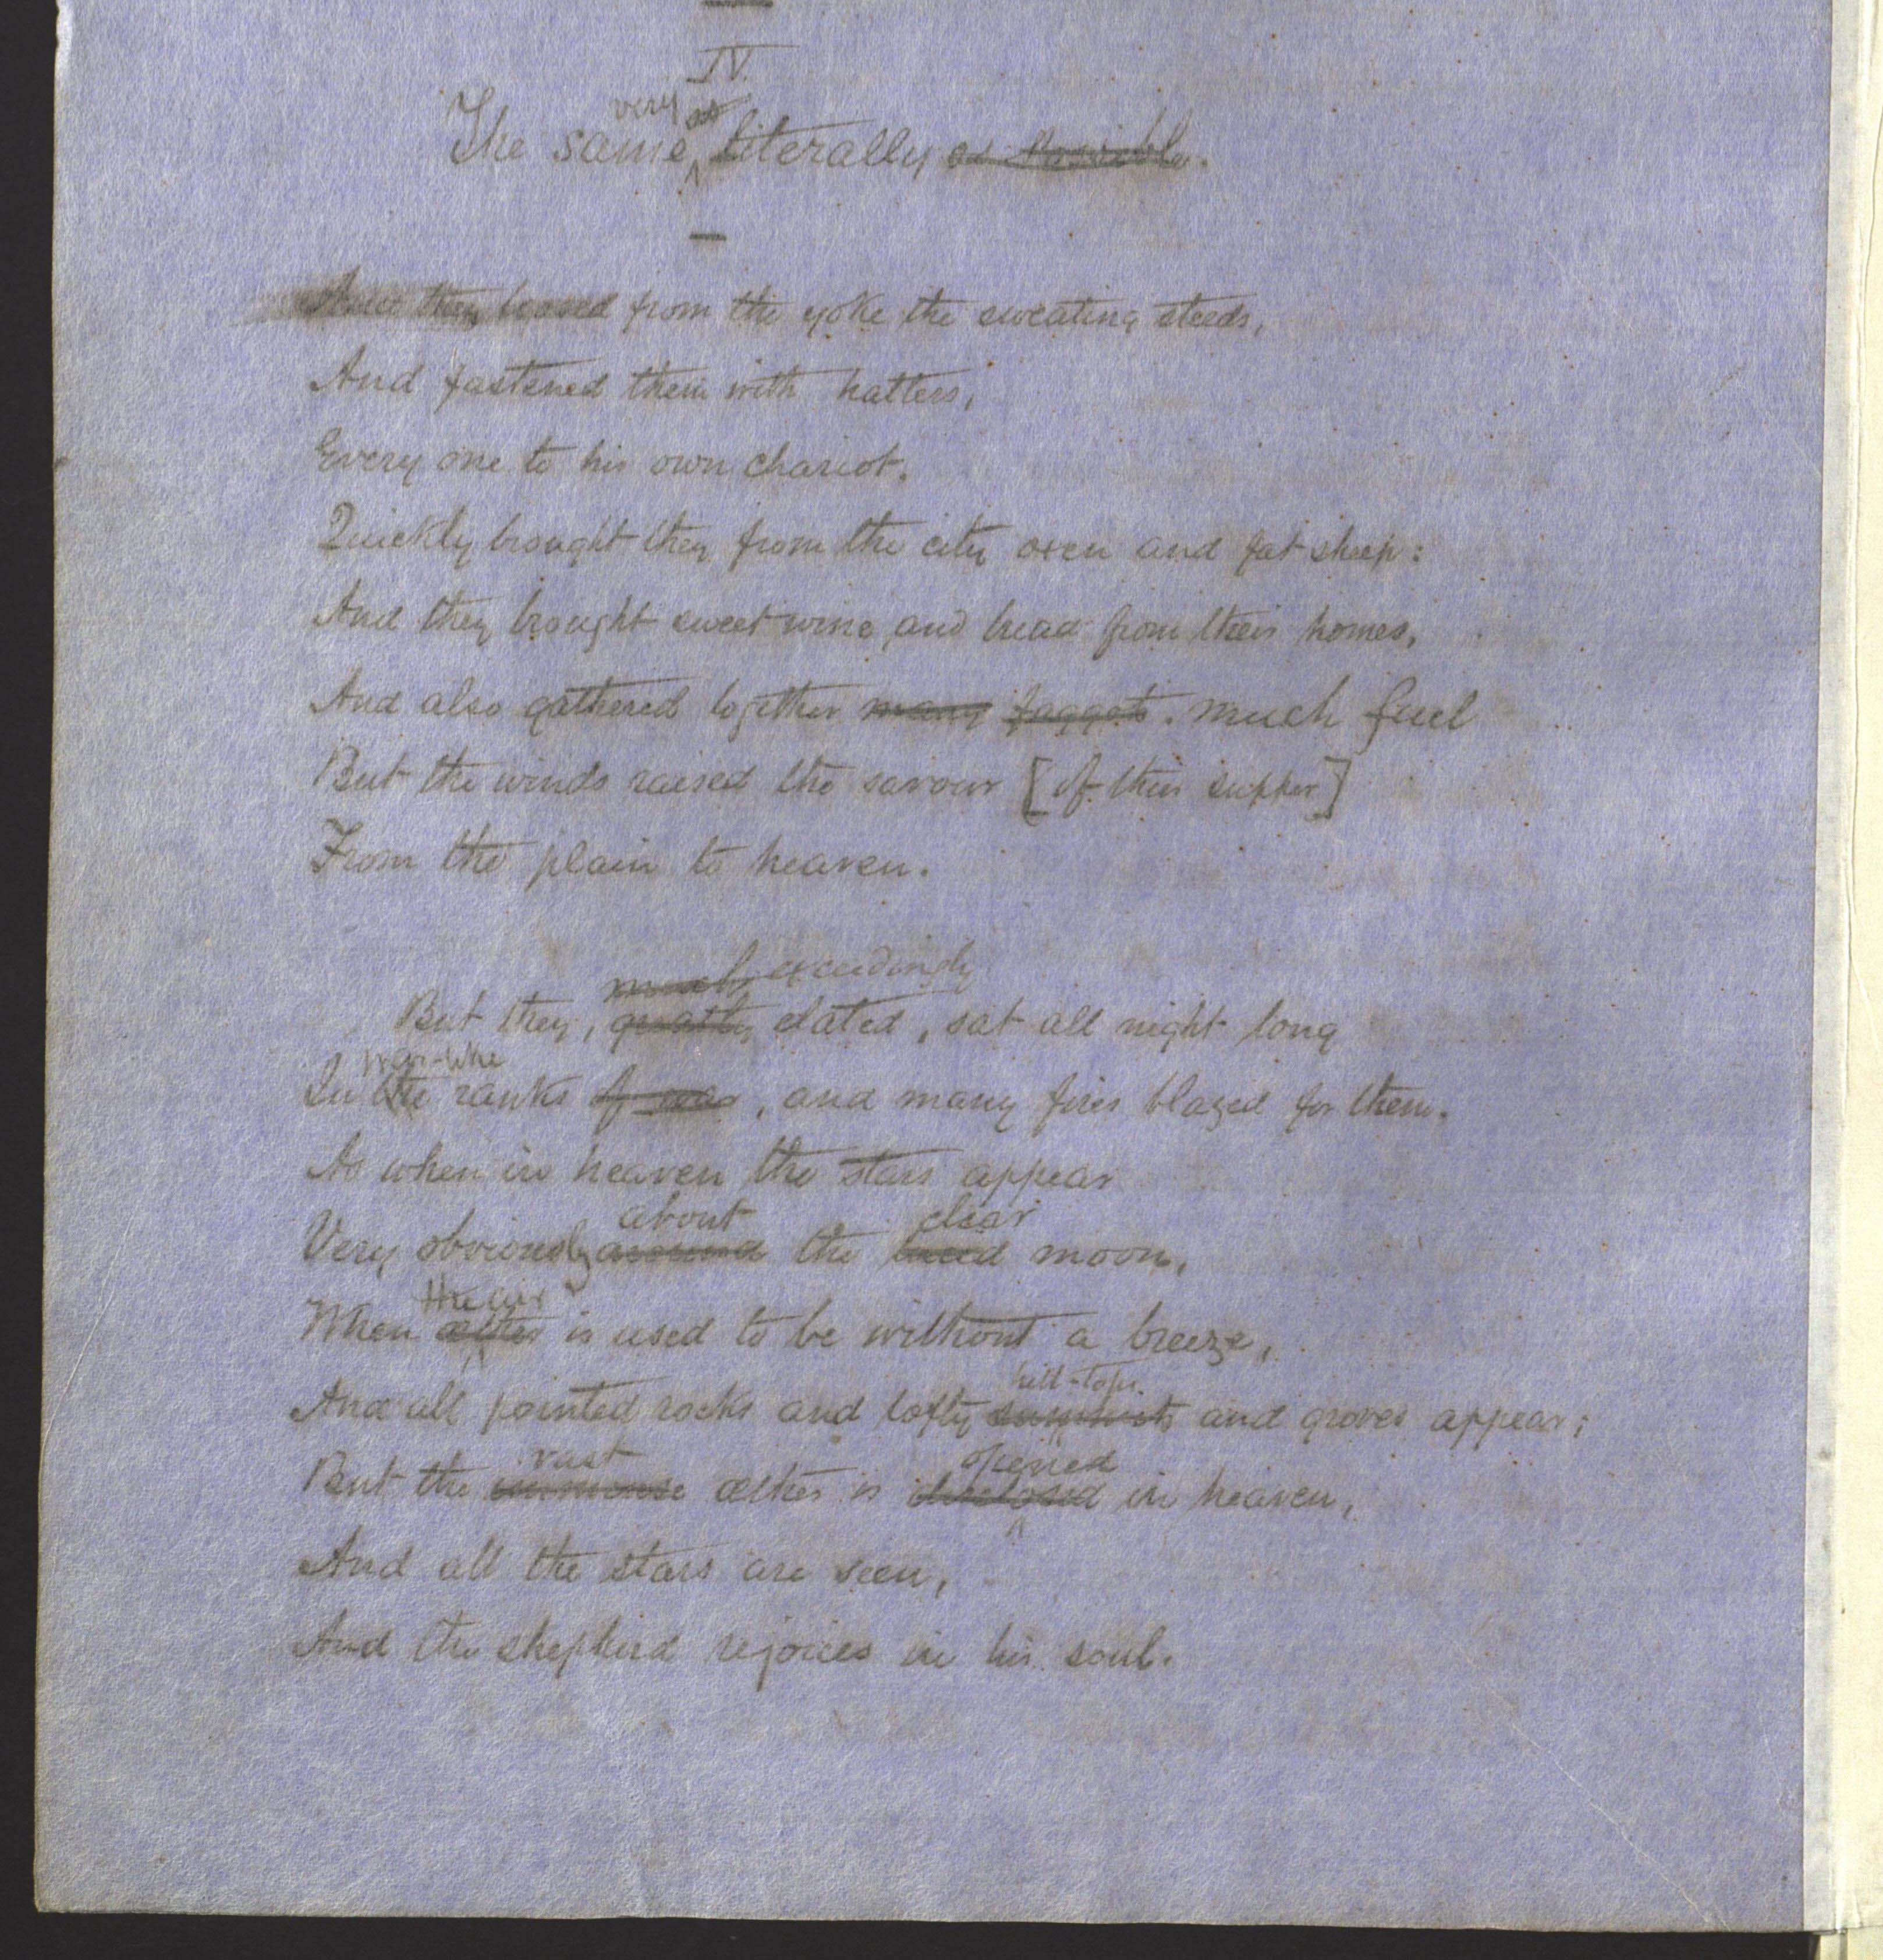 IV.
very as
The same, literally as possible.
And they loosed from the yoke the sweating steeds,
And fastened them with halters,
Every one to his own chariot.
Quickly brought they from the city oxen and fat sheep:
And they brought sweet wine and bread from their homes,
And also gathered together many faggots. much fuel
But the winds raised the savour [of their supper]
From the plain to heaven.
much exceedingly
But they, greatly elated, sat all night long
war-like
In the ranks of war, and many fires blazed for them.
As when in heaven the stars appear
about clear
Very obviously around the lucid moon,
the air
When æther is used to be without a breeze,
hill-tops
And all pointed rocks and lofty summits and groves appear;
vast opened
But the immense æther is disclosed in heaven,
And all the stars are seen,
And the shepherd rejoices in his soul.